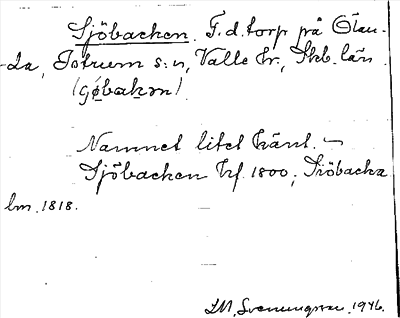 Sjöbacken. F.d. torp på Ölan-
da, Istrum s:n, Valle hr., Skb. län
Namnet litet känt. –
Sjöbacken hf. 1800; Siöbacka
lm. 1818.
LM. Svenungsson. 1946.